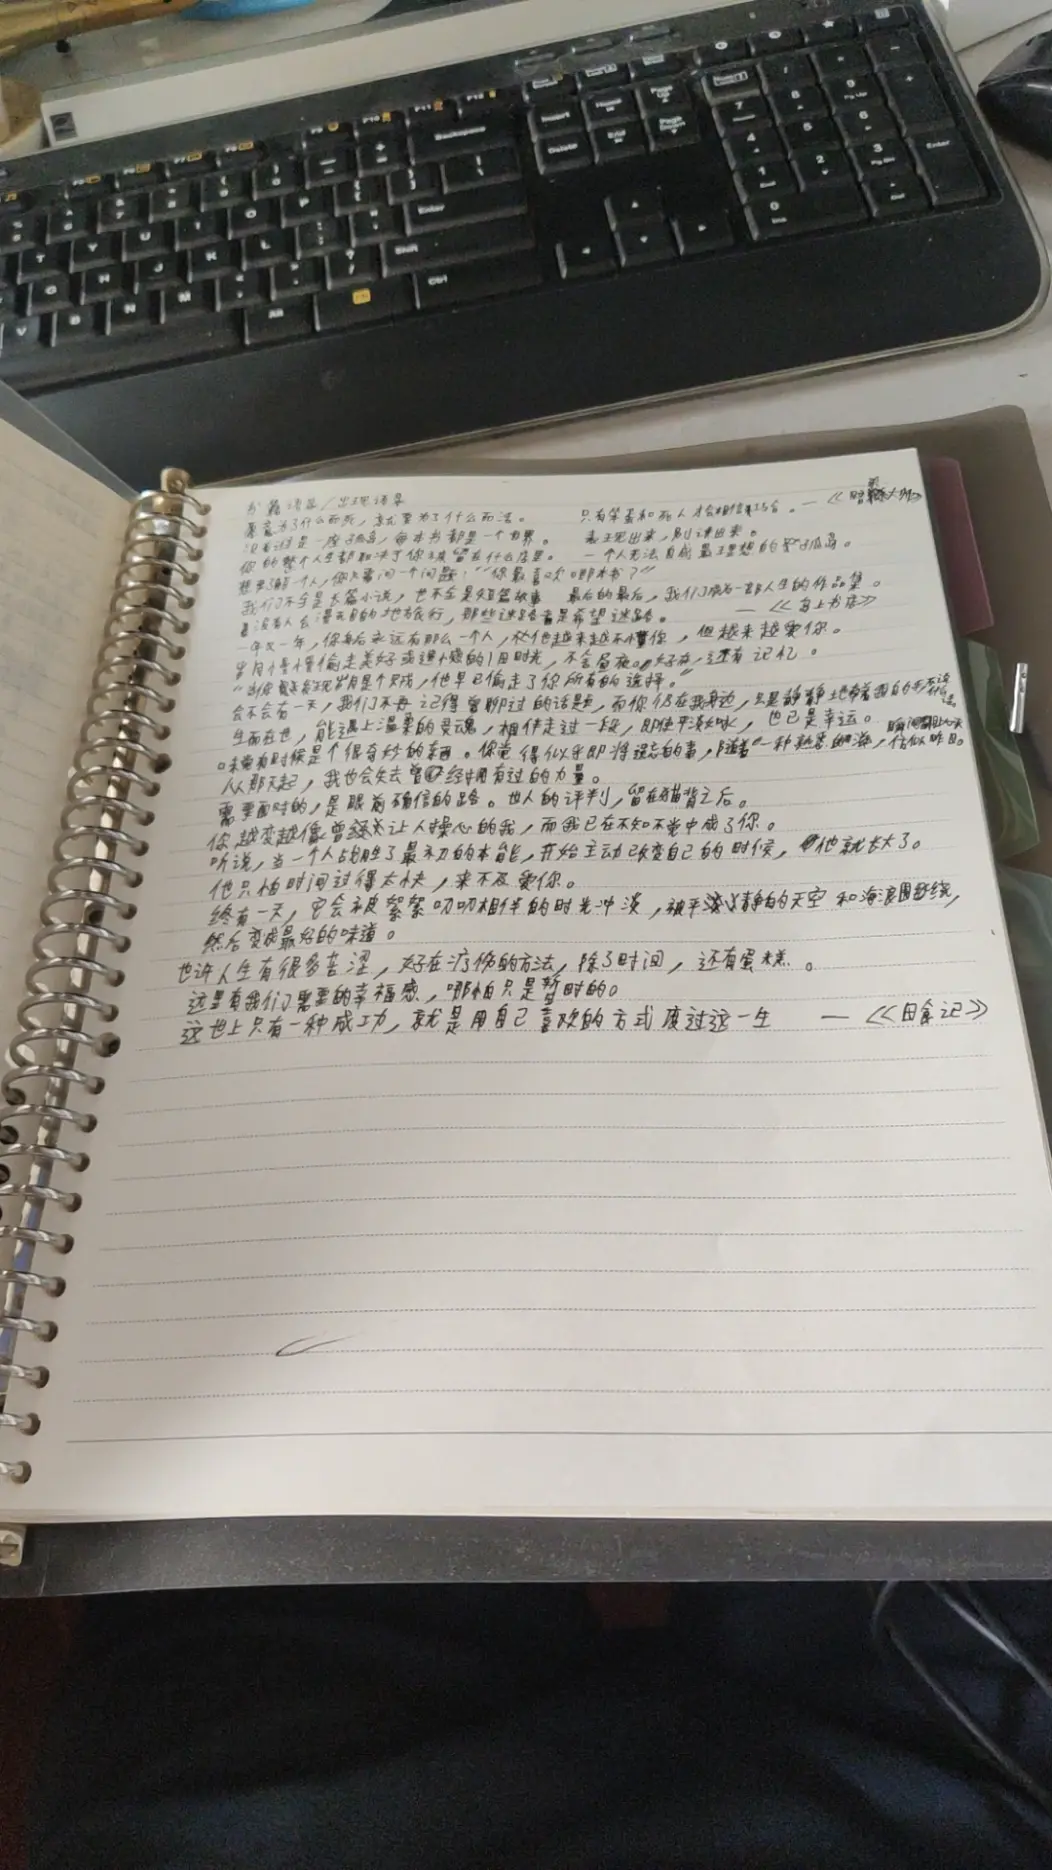 Backspace
Insert
Home
Page Up
Delete
End
Page Down
Enter
Shift
Ctrl
Alt
Enter
书籍语录/出现语录
愿意为了什么而死，就要为了什么而活。 只有笨蛋和死人才会相信 — 《暗黑大州》
没有谁是一座孤岛，每本书都是一个世界。 表现出来，别讲出来。
你的整个人生都取决于你被留在什么店里。 一个人无法自成最理想的孤岛。
想要了解一个人，你只需问一个问题："你最喜欢哪本书？"
我们不全是长篇小说，也不全是短篇故事 最后的最后，我们成为一部人生的作品集。
有没有人去漫无目的地旅行，那些迷路者是希望迷路。 — 《岛上书店》
一年又一年，你身后永远有那么一个人，他越来越不懂你，但越来越爱你。
岁月慢慢偷走美好或遗憾的旧时光，不舍昼夜。好在，还有记忆。
"当你发现岁月是个贼，他早已偷走了你所有的选择。"
会不会有一天，我们不再记得曾聊过的话题，而你仍在我身边，只是静静地
生而在世，能遇上温柔的灵魂，相伴走过一段，即使平淡如水，也已是幸运。
味觉有时候是个很奇妙的东西。你觉得似乎即将遗忘的事，随着一种熟悉的，恰似昨日。
从那天起，我也会失去曾经拥有过的力量。
需要面对的，是眼前确信的路。世人的评判，留在背之后。
你越变越像曾经让人操心的我，而我已在不知不觉中成了你。
听说，当一个人战胜了最初的本能，开始主动改变自己的时候，他就长大了。
他只怕时间过得太快，来不及爱你。
终有一天，它会被絮絮叨叨相伴的时光冲淡，被平淡安静的天空和海浪围绕，
然后变成最好的味道。
也许人生有很多苦涩，好在疗伤的方法，除了时间，还有蛋糕。
这里有我们需要的幸福感，哪怕只是暂时的。
这世上只有一种成功，就是用自己喜欢的方式度过这一生 — 《日食记》